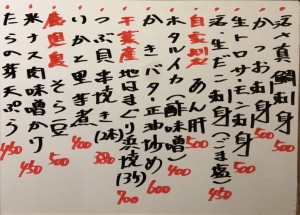 活〆真鯛刺身 500
かつお刺身 500
生トロサーモン刺身 500
活・生だこ刺身(ごま塩) 450
自家製 あん肝 500
ホタルイカ(酢味噌) 400
かきバター正油炒め 600
千葉産 地はまぐり浜焼(3ケ) 700
つぶ貝串焼き(1本) 380
いかと里芋煮 400
鹿児島 そら豆 500
米ナス肉味噌かけ 450
たらの芽天ぷら 450